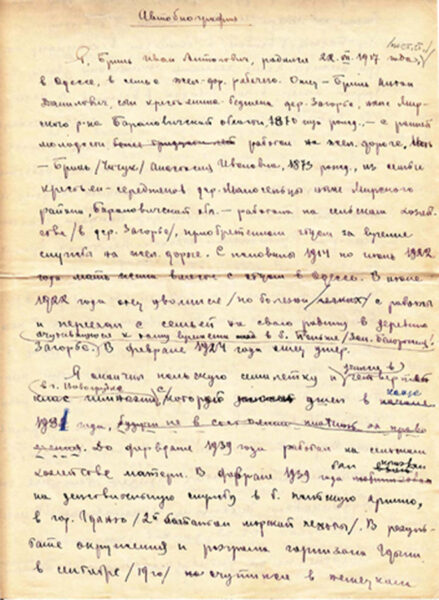 Автобиография
/нов. ст./
Я, Брыль Иван Антонович, родился 22. VII. 1917 года
в Одессе, в семье жел-дор. рабочего. Отец – Брыль Антон
Данилович, сын крестьянина-бедняка дер. Загорье, ныне Мир-
ского р-на Барановичской области, 1870 года рожд. – с ранней
молодости работал на жел. дороге, Мать
– Брыль /Чичук/ Анастасия Ивановна, 1873 рожд., из семьи
крестьян-середняков дер. ныне Мирского
района, Барановичской обл. – работала на сельском хозяй-
стве /в дер. Загорье/, приобретенном отцом за время
службы на жел. дороге. С половины 1914 по июнь 1922
года мать жила вместе с отцом в Одессе. В июне
1922 года отец уволился /по болезни легких/ с работы
и переехал с семьей на свою родину в деревню
к тому времени в б. Польше /Зап. Белоруссии/
Загорье. В феврале 1924 года отец умер.
Я окончил польскую семилетку и четвертый
в г. Новогрудке
класс гимназии, с которой ушел в конце
1931 года, будучи не в состоянии за право
учения. До февраля 1939 года работал на сельском
хозяйстве матери. В феврале 1939 года был
на действительную службу в б. польскую армию,
в гор. Гдыню /2й батальон морской пехоты/. В резуль-
тате окружения и разгрома гарнизона Гдыни
в сентябре /19го/ я очутился в немецком